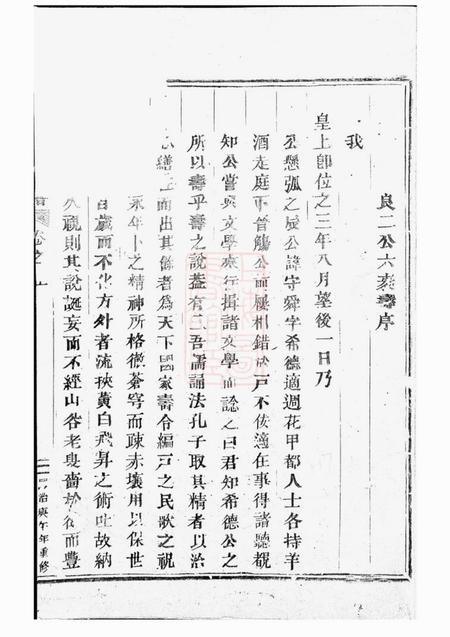 良二公六袠壽序
我
皇上卽位之三年八月望後一日乃
公懸弧之辰公諱守舜字希德適週花甲都人士各持羊
酒走庭下晉觴公而屨相錯於戶不佞適在事得諸聽覩
知公嘗與文學應行揖諸文學而諗之曰君知希德公之
所以壽乎壽之說蓋有三吾儒誦法孔子取其精者以治
繕而出其餘者為天下國家壽令編戶之民歌之祝
永年之精神所格徹蒼穹而疎赤壤用以保世
百歲而不化方外者流秧黃白飛昇之術吐故納
視則其說誕妄而不經山谷老叟嗇於而豐
治庚午年重修